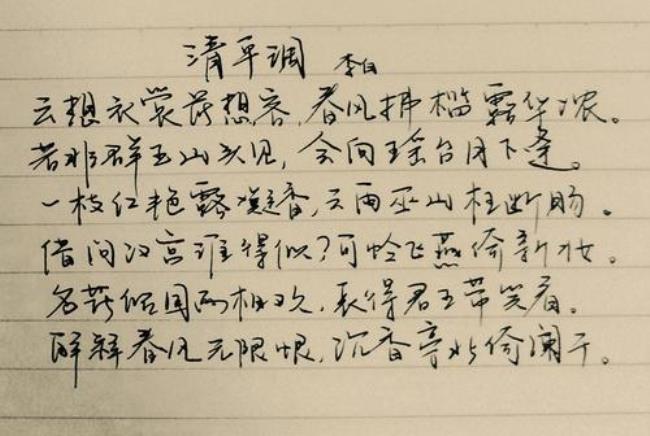 清平调 李白
云想衣裳花想容，春风拂槛露华浓。
若非群玉山头见，会向瑶台月下逢。
一枝红艳露凝香，云雨巫山枉断肠。
借问汉宫谁得似？可怜飞燕倚新妆。
名花倾国两相欢，长得君王带笑看。
解释春风无限恨，沉香亭北倚阑干。